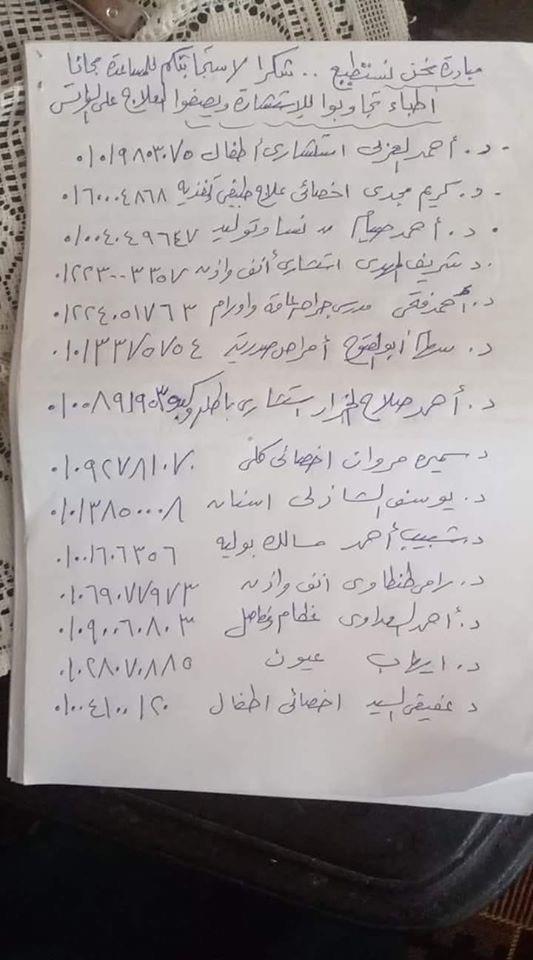 مبادرة نحن نستطيع .. شكرا لاستجابتكم للمساعدة مجانا
أطباء تجاوبوا للإستشارة ويصفوا العلاج على الواتس
- د. أحمد العزبى استشارى أطفال ٠١٠١٩٨٠٣٠٧٥
- د. كريم مجدى اخصائى علاج طبيعى وتغذيه ٠١٦٠٠٠٤٨٦٨
- د. أحمد نسا وتوليد ٠١٠٠٤٠٤٩٦٤٧
د. شريف المهدى استشارى أنف واذن ٠١٢٢٣٠٠٣٣٥٧
د. أحمد فتحى مدرس جراحه عامة واورام ٠١٢٢٤٠٥١٧٦٣
د. سها أبو الفتوح أمراض صدرية ٠١٠١٣٣٧٥٧٥٤
د. أحمد صلاح الجزار استشارى باطنه وكبد ٠١٠٠٨٩١٩٥٣
د سميره مروان اخصائى كلى ٠١٠٩٢٧٨١٠٧٠
د. يوسف الشاذلى اسنان ٠١٠١٣٨٥٠٠٠٨
د. شبيب أحمد مسالك بوليه ٠١٠٠١٦٠٦٣٥٦
د. رامى طنطاوى انف واذن ٠١٠٦٩٠٧٧٩٧٣
د. أحمد السعداوى عظام ٠١٠٩٠٠٦٠٨٠٣
د. ايهاب عيون ٠١٠٢٨٠٧٠٨٨٥
د عفيفى السيد اخصائى اطفال ٠١٠٠٤١٠٠١٢٠